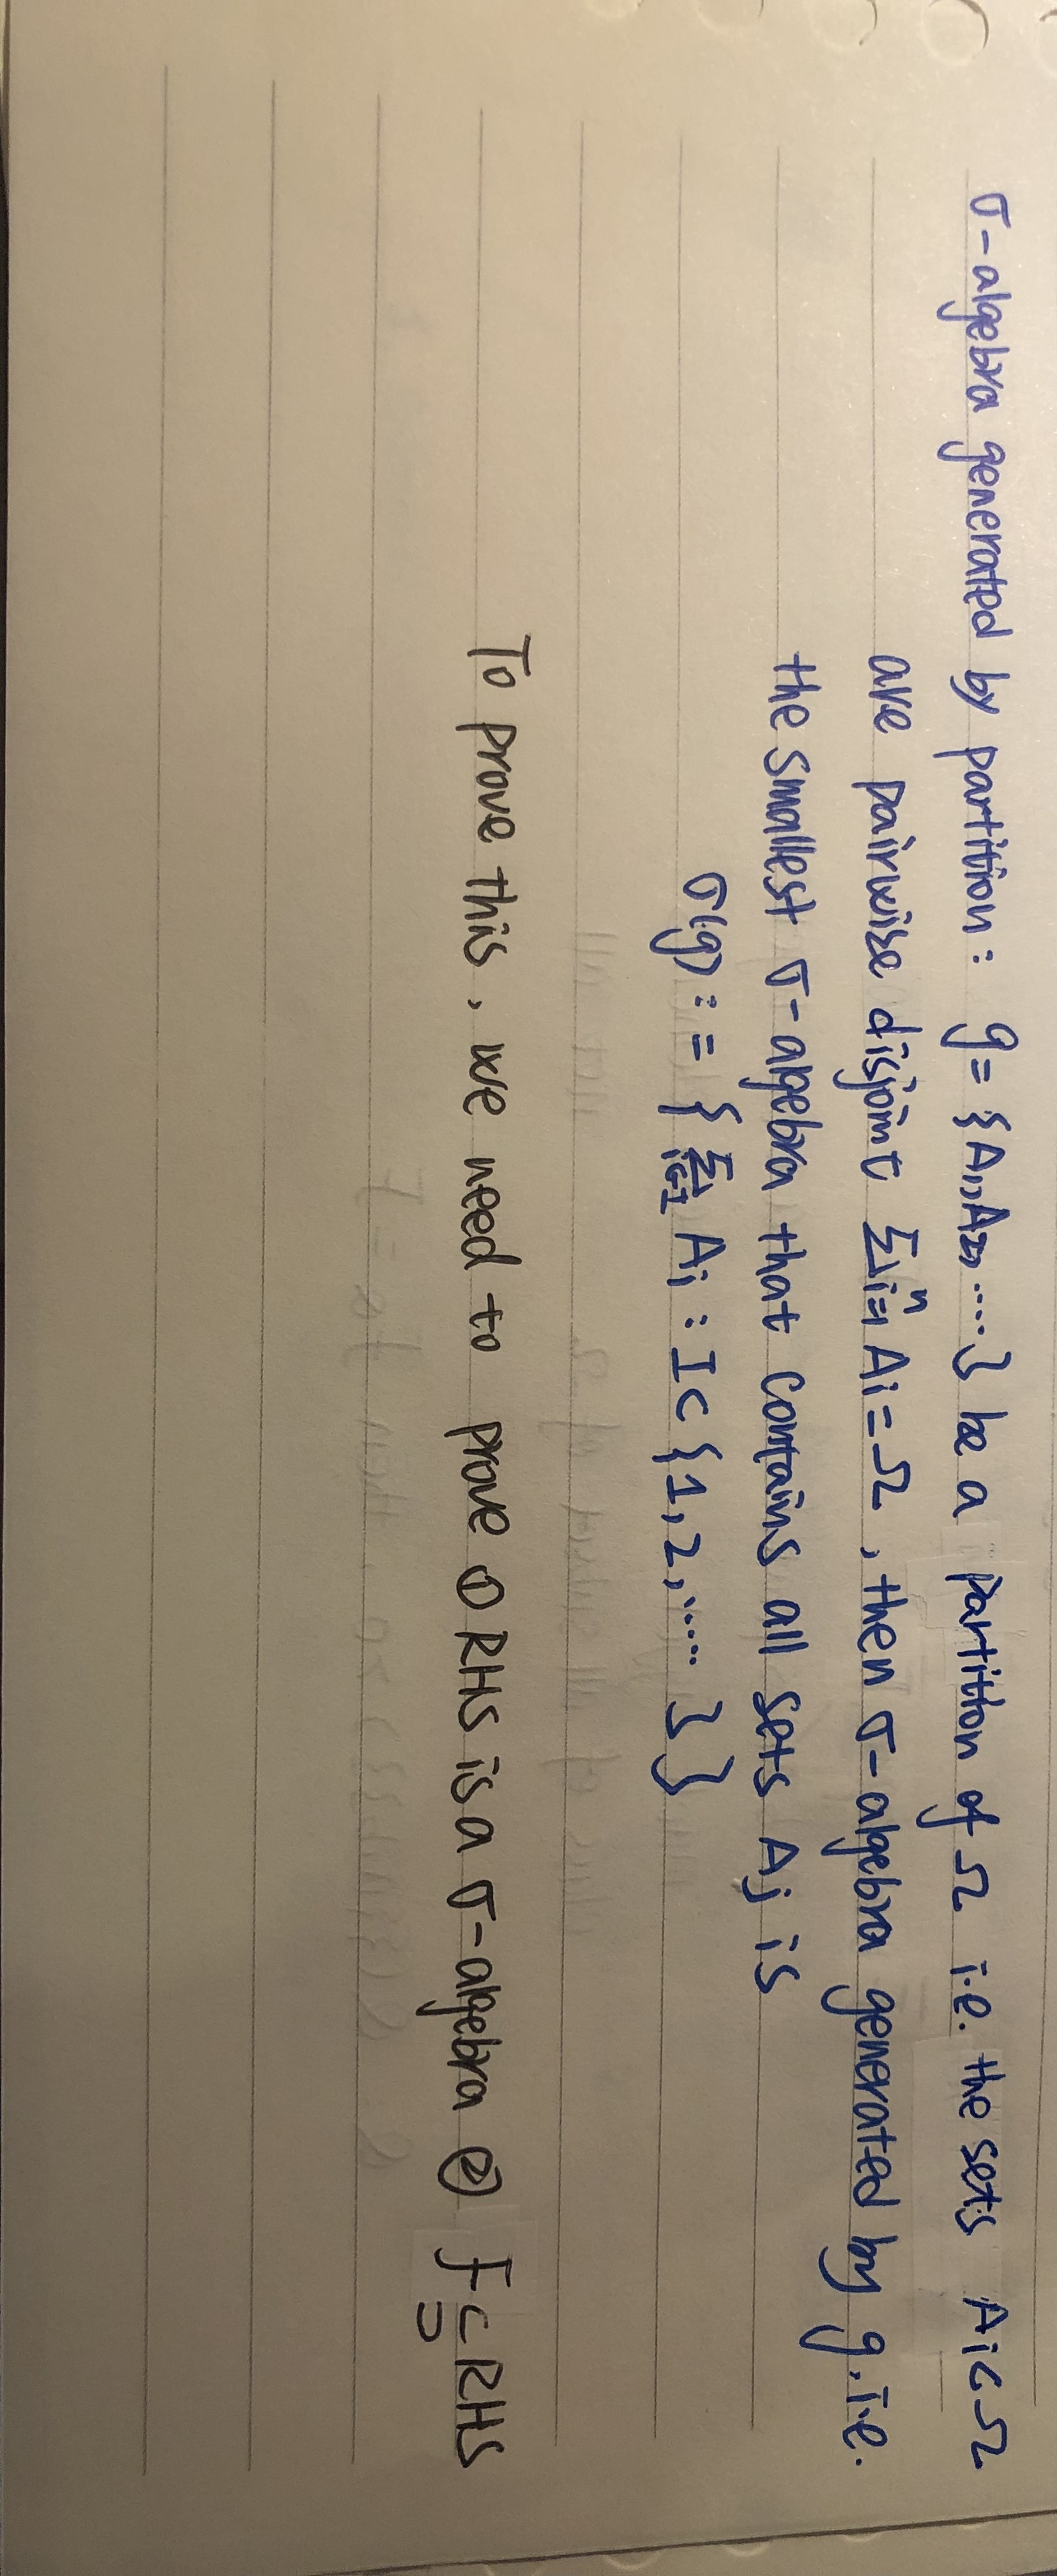 σ-algebra generated by partition : g = {A₁, A₂, ....} be a partition of Ω i.e. the sets Ai⊂Ω
are pairwise disjoint Σi=1ⁿ Ai = Ω , then σ-algebra generated by g, i.e.
the smallest σ-algebra that contains all sets Aj is
σ(g) := { Σi∈I Ai : I⊂{1,2,.... } }
To prove this, we need to prove ① RHS is a σ-algebra ② f ⊂ RHS
⊃